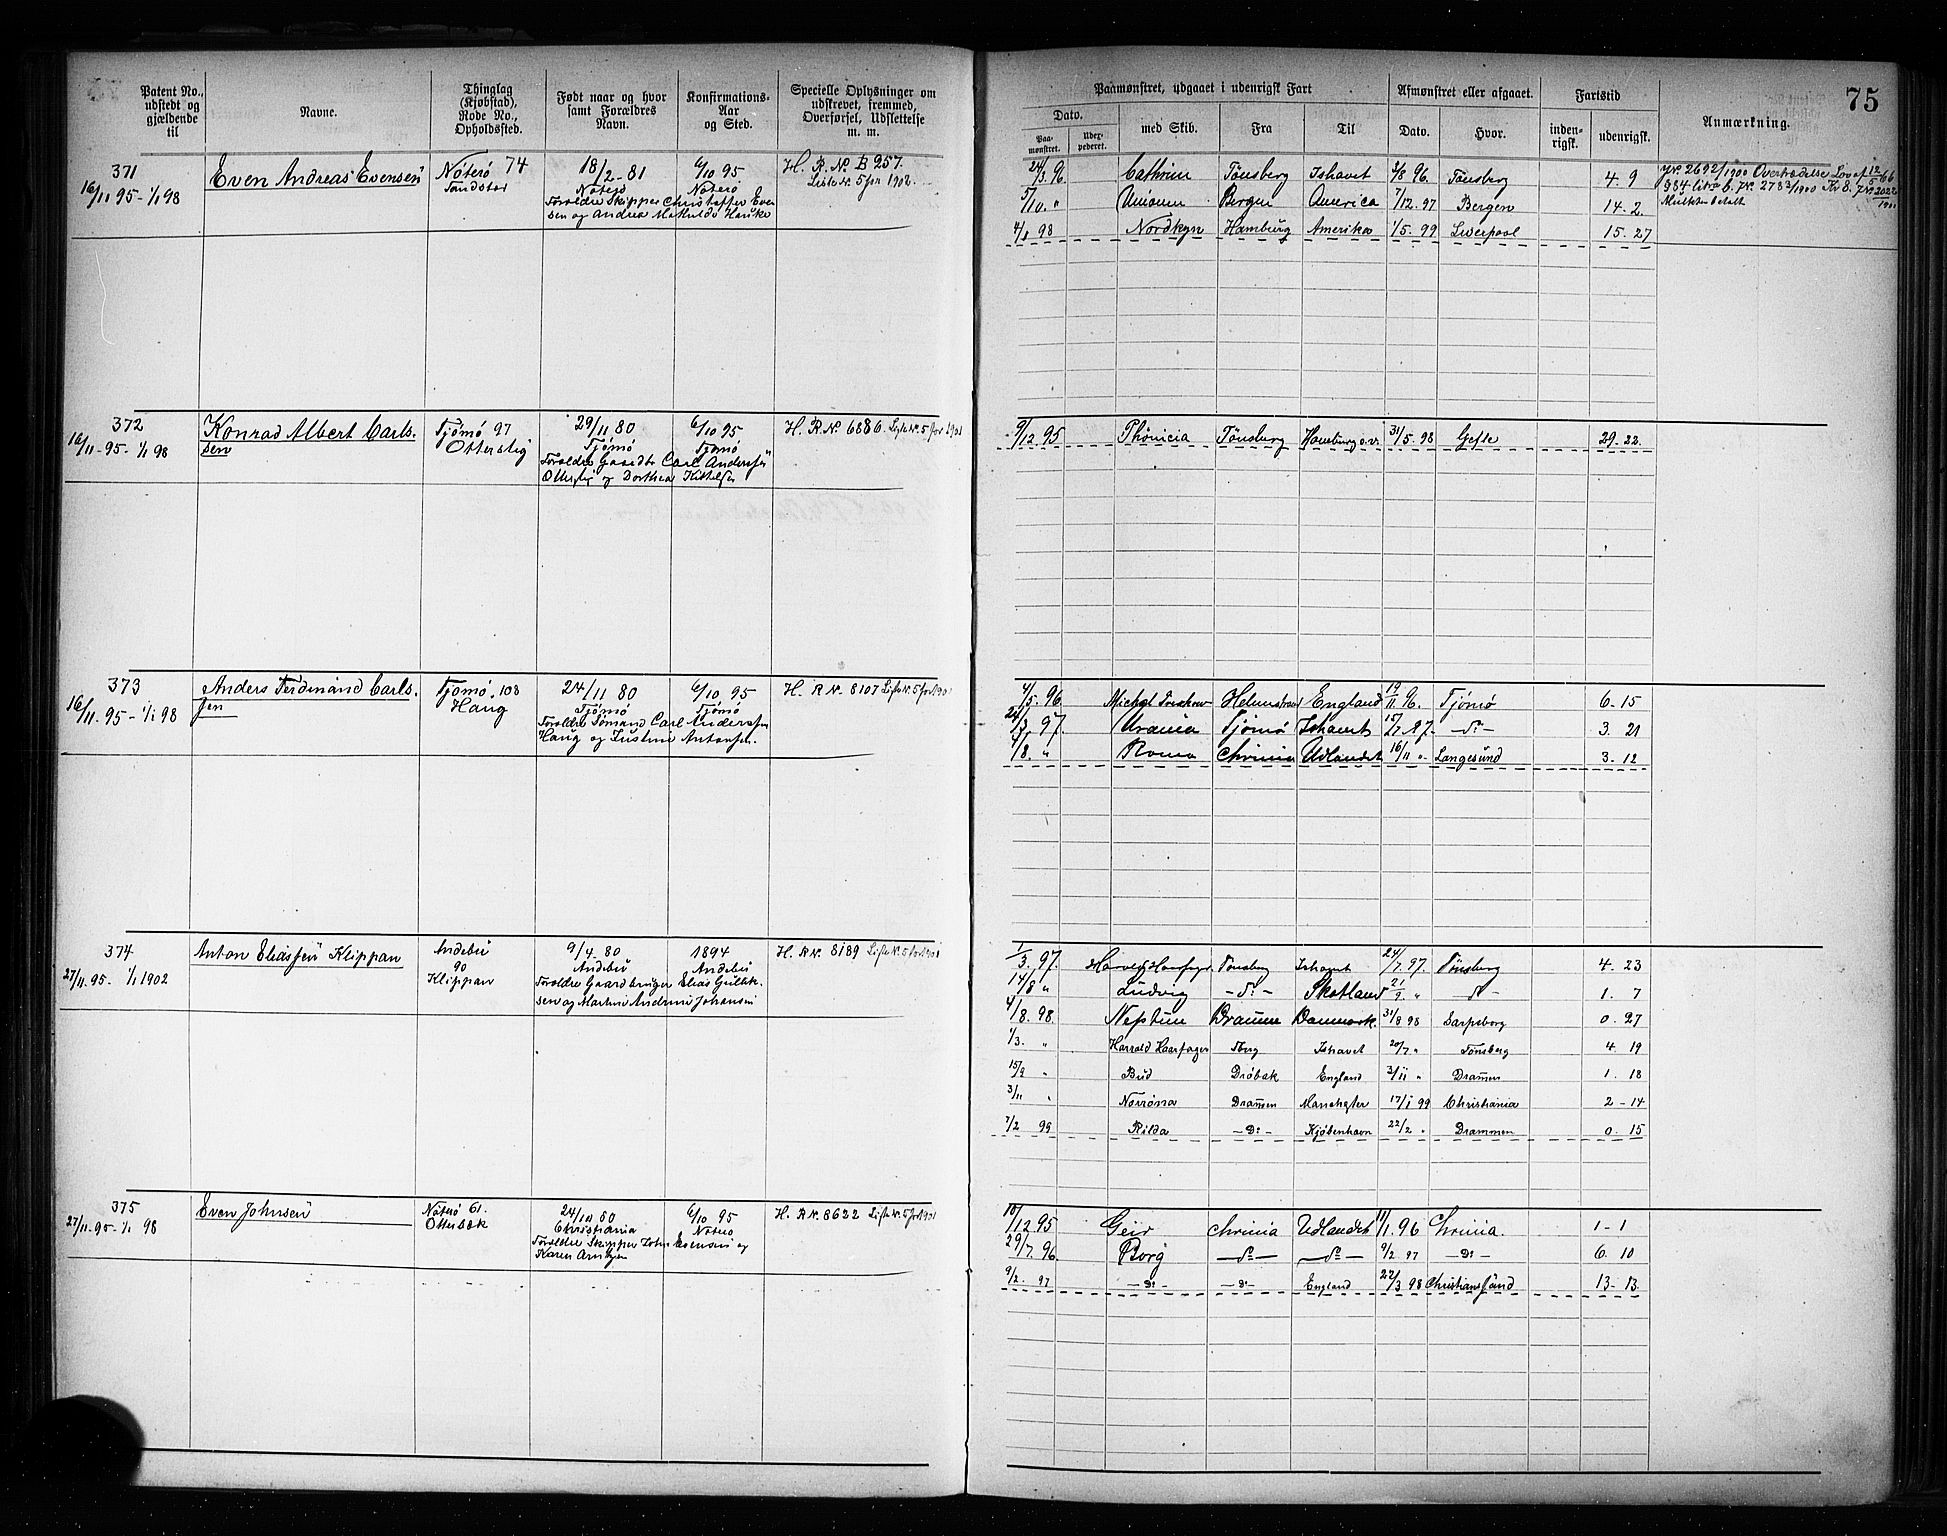 75
Patent No., udstedt og gjældende til
Navne.
Thinglag (Kjøbstad), Rode No., Opholdssted.
Født naar og hvor samt Forældres Navn.
Konfirmations-Aar og Sted.
Specielle Oplysninger om udskrevet, fremmed, Overførsel, Udslettelse m. m.
Paamønstret, udgaaet i udenrigsk Fart
Dato.
Paamønstret.
med Skib.
Fra
Til
Afmønstret eller afgaaet.
Dato.
Hvor.
Fartstid
indenrigsk.
udenrigsk.
Anmærkning.
371
16/11 95 - 1/1 98
Even Andreas Evensen
Nøterø 74
18/2 - 81
Nøterø
Forældre Skipper Christoffer Evensen og Andrea Mathilde
6/10 95
Nøterø
H. R. N. B 257.
Liste N. 5 for 1902.
24/3 96. Cathrine Tønsberg Ishavet 2/8 96. Tønsberg 4. 9
5/10. " Unionen Bergen America 7/12. 97 Bergen 14. 2.
4/1 98 Nordkyn Hamburg Amerika 1/5. 99 Liverpool 15. 27
Jr. 2692/1900 Overtrædelse Lov af 12/5 66
§ 34 litra b. Jr. 2783/1900 Kr 8.
Mulkten betalt
372
16/11 - 95 - 1/1 98
Konrad Albert Carlssen
Tjømø 97
Otterstig
29/11 80
Tjømø
Forældre Carl Andersen
og Dorthea
6/10 95
Tjømø
H. R. N. 6886. Liste N. 5 for 1901
9/12. 95 Phönicia Tønsberg Hamburg o. v. 31/5. 98 Gefle 29. 22.
373
16/11 - 95 - 1/1 98
Anders Ferdinand Carlssen
Tjømø. 108
Haug
24/11 80
Tjømø
Forældre Sømand Carl Andersen
Haug og Justine Antonsen.
6/10 95
Tjømø
H. R N. 8107 Liste N. 5 for 1901
4/5. 96 England 19/11 96. Tjømø 6. 15
24/3. 97. Urania Tjømø Ishavet 15/7. 97. - do - 3. 21
4/8. " Roma Chrinia Udlandet 16/11 " Langesund 3. 12
374
27/11. 95. - 1/1 1902
Anton Eliassen Klippan
Andebu
90
Klippan
9/4. 80
Andebu
Forældre Gaardbruger Elias Gulliksen og Martine Andrine Johansen
1894
Andebu
H. R N. 8189 Liste N. 5 for 1901
1/3. 97. Tønsberg Ishavet 24/7. 97. Tønsberg 4. 23
14/8 " Ludvig - do - Skotland 21/9. " do - 1. 7
4/8. 98. Neptun Drammen Danmark. 31/8 98 Sarpsborg 0. 27
1/3. " Harrald Haarfager Tberg Ishavet 20/7 " Tønsberg 4. 19
15/9 " Bud Drøbak England 3/11 " Drammen 1. 18
3/11 " Norrøna Drammen Manchester 17/1 99 Christiania 2 - 14
7/2 99 Rilda - Do - Kjøbenhavn 22/2 " Drammen 0. 15
375
27/11. 95 - 1/1 98
Even Johnsen
Nøterø 61.
Otterbæk
24/10 80
Christiania
Forældre Skipper John Evensen og
Karen
6/10 95
Nøterø
H. R N. 8622 Liste N. 5 for 1901
10/12. 95 Geir Chrinia Udlandet 11/1. 96 Chrinia. 1 - 1
29/7. 96 Borg - do - - do - 9/2. 97 - Do - 6. 10
9/2. 97 - Do - - Do - England 22/3 98 Christianssund 13 - 13